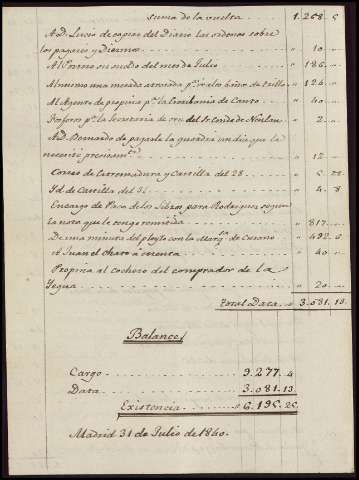 Suma de la vuelta 1.268. 5
A D. Lucio de copias del Diario las ordenes sobre
los pagares y Diezmos " 10 "
Al Sereno su sueldo del mes de Julio " 186 "
Al mismo una mesada p.ª los baños de Trillo " 124 "
Al Agente de propina p.r la Escribania de Canto " 40 "
p.ª la Secretaria de orn del S.r Conde de " 2 "
A D. Bernardo de pagarle la guardia un dia que la
necesitó precisam.te " 12 "
Correo de Extremadura y Castilla del 28 " 5
Yd. de Castilla del 31 " 4. 8
Encargo de Paca de los libros para Rodriguez segun
la nota que le tengo remitida " 817 "
De una minuta del pleyto con la Marq.sa de " 492
A Juan el chato a cuenta " 40 "
Propina al cochero del comprador de la
Yegua " 20 "
Total Data " 3.081. 13.
Balance
Cargo 9.277. 4
Data 3.081. 13.
Existencia 6.195. 25.
Madrid 31 de Julio de 1840.